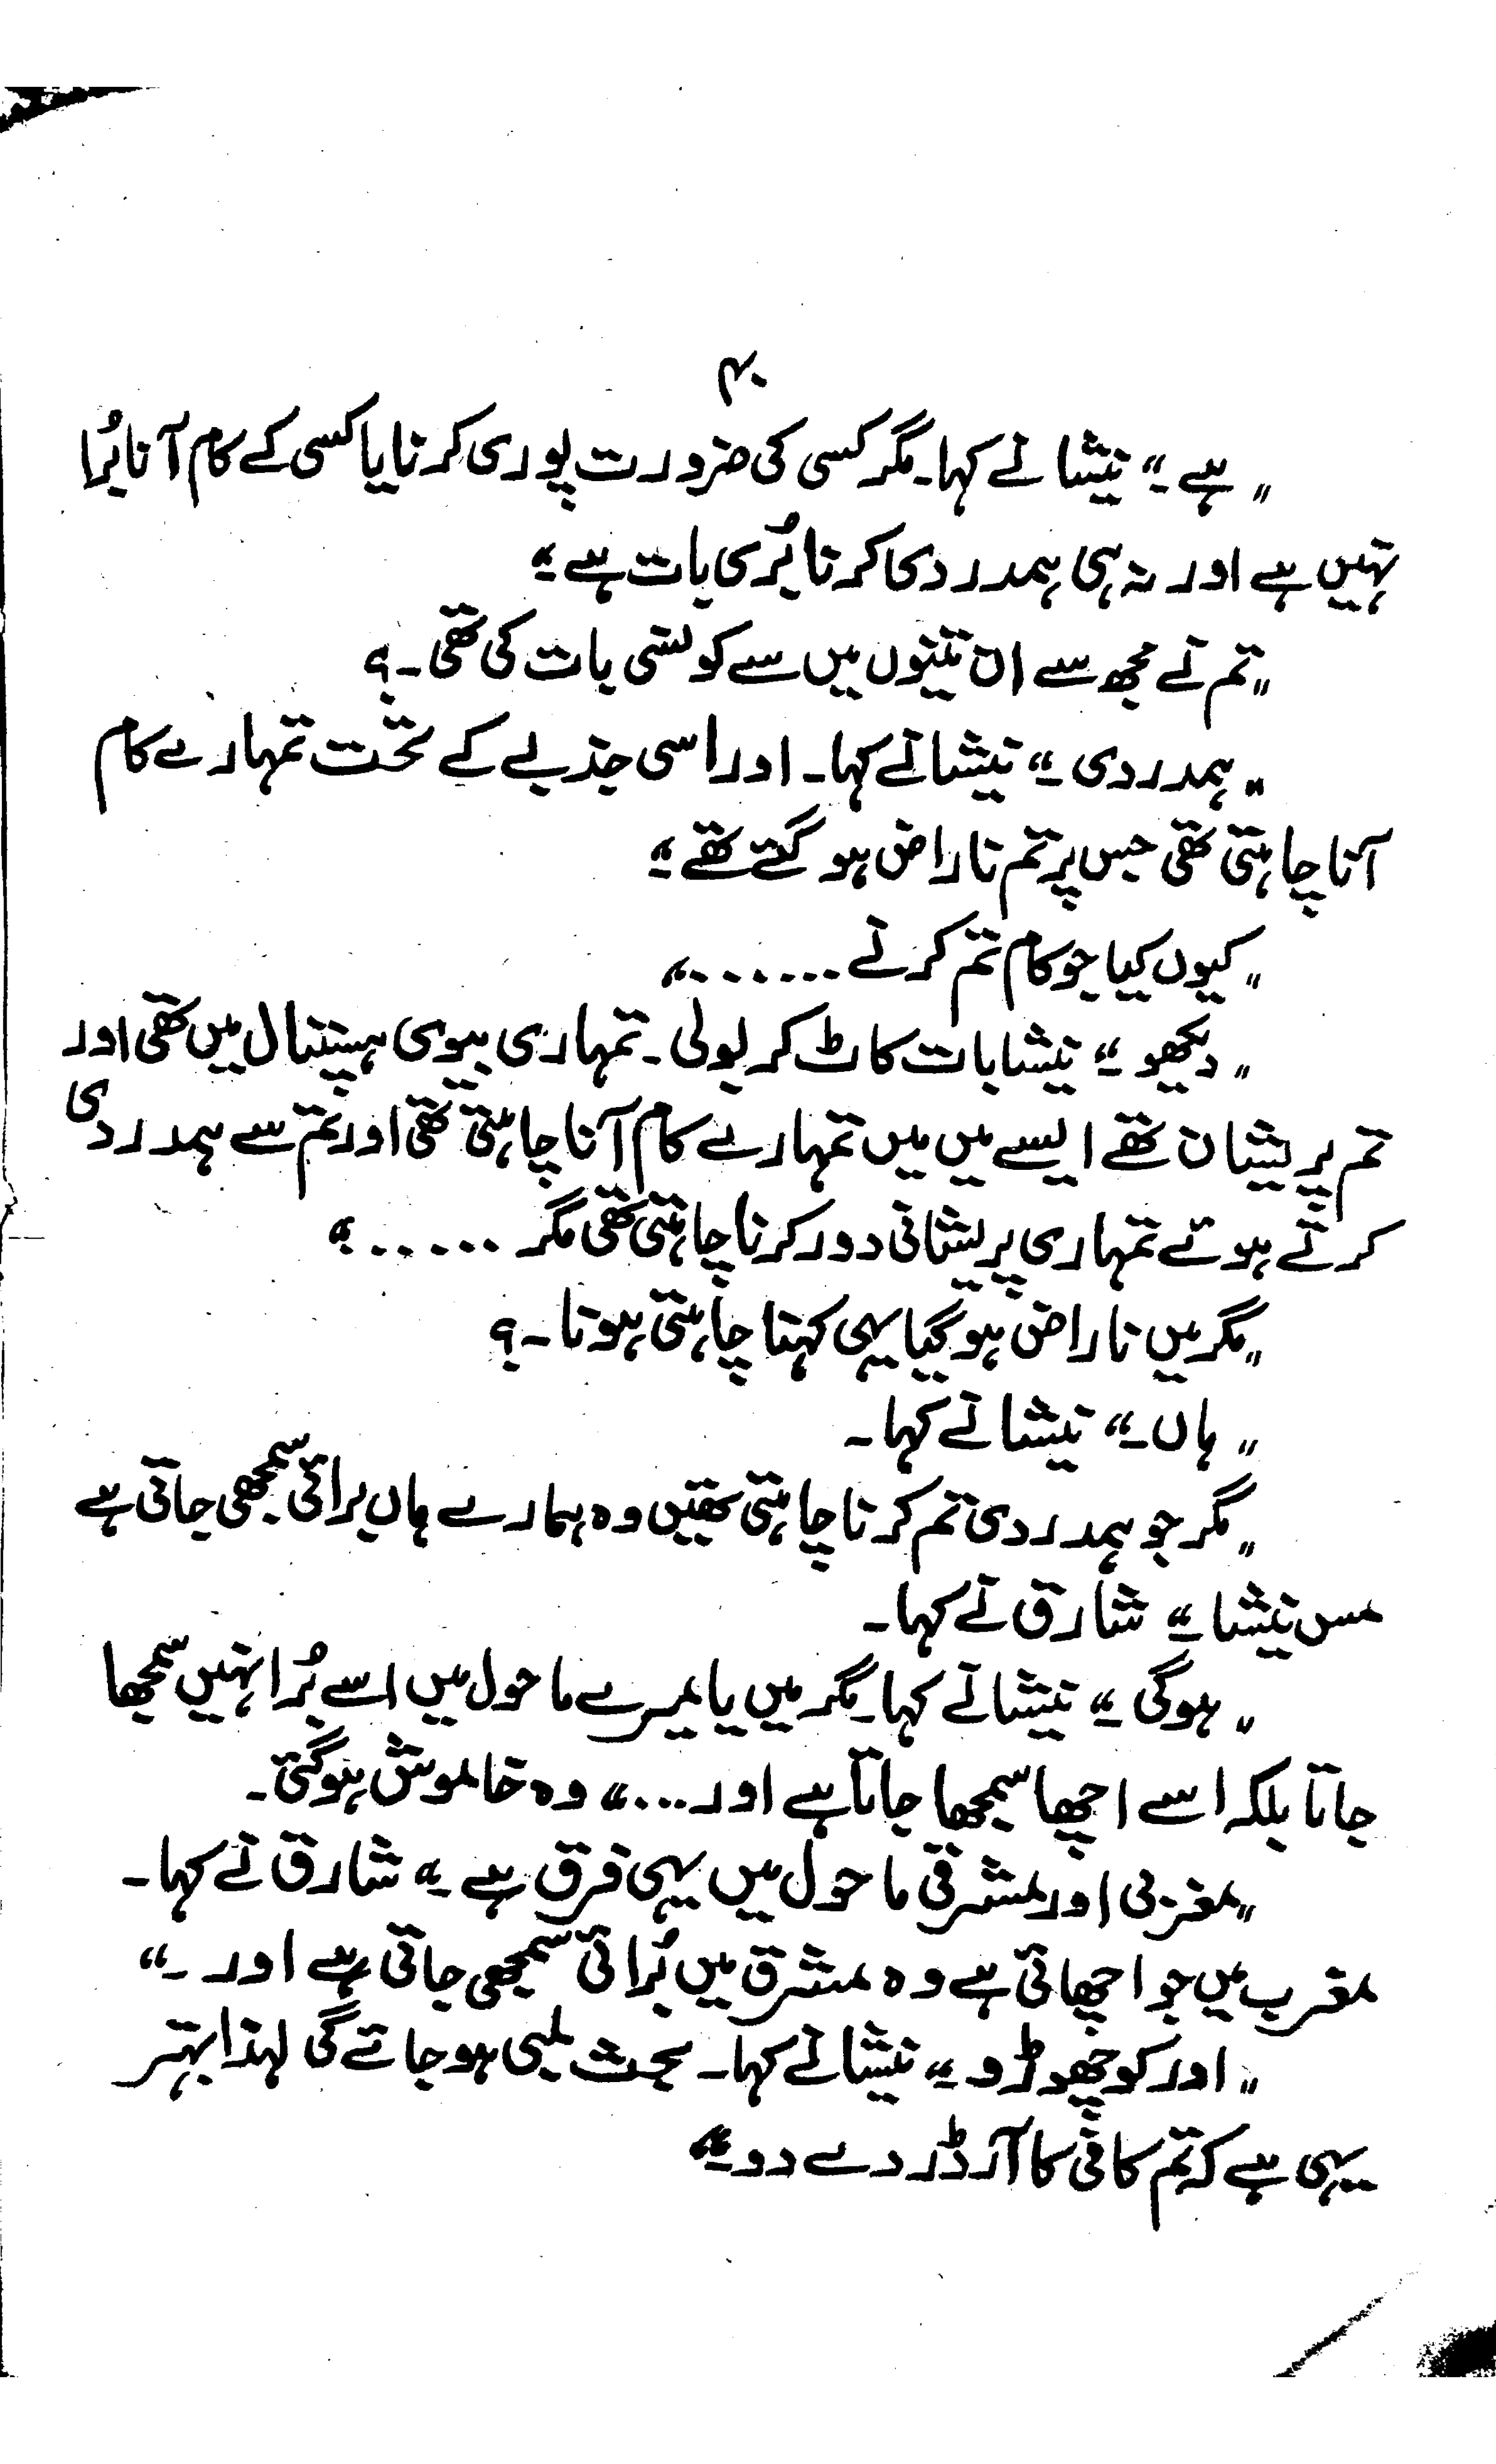 ۴۰
"ہے۔" نیشا نے کہا۔ مگر کسی کی ضرورت پوری کرنا یا کسی کے کام آنا بُرا
نہیں ہے اور نہ ہی ہمدردی کرنا بُری بات ہے۔"
"تم نے مجھ سے ان تینوں میں سے کونسی بات کی تھی۔؟
"ہمدردی۔" نیشا نے کہا۔ اور اسی جذبے کے تحت تمہارے کام
آنا چاہتی تھی جس پر تم ناراض ہو گئے تھے۔"
"کیوں کیا جو کام تم کرنے ......."
"دیکھو۔" نیشا بات کاٹ کر بولی۔ تمہاری بیوی ہسپتال میں تھی اور
تم پریشان تھے ایسے میں میں تمہارے کام آنا چاہتی تھی اور تم سے ہمدردی
کرتے ہوئے تمہاری پریشانی دور کرنا چاہتی تھی مگر ......"
"مگر میں ناراض ہو گیا یہی کہنا چاہتی ہو نا۔؟
"ہاں۔" نیشا نے کہا۔
"مگر جو ہمدردی تم کرنا چاہتی تھیں وہ ہمارے ہاں برائی سمجھی جاتی ہے
مس نیشا۔" شارق نے کہا۔
"ہوگی۔" نیشا نے کہا۔ مگر میں یا میرے ماحول میں اسے بُرا نہیں سمجھا
جاتا بلکہ اسے اچھا سمجھا جاتا ہے اور...." وہ خاموش ہوگئی۔
"مغربی اور مشرقی ماحول میں یہی فرق ہے۔" شارق نے کہا۔
مغرب میں جو اچھائی ہے وہ مشرق میں بُرائی سمجھی جاتی ہے اور۔"
"اور کو چھوڑو۔" نیشا نے کہا۔ بحث لمبی ہو جائے گی لہذا بہتر
یہی ہے کہ تم کافی کا آرڈر دے دو۔"